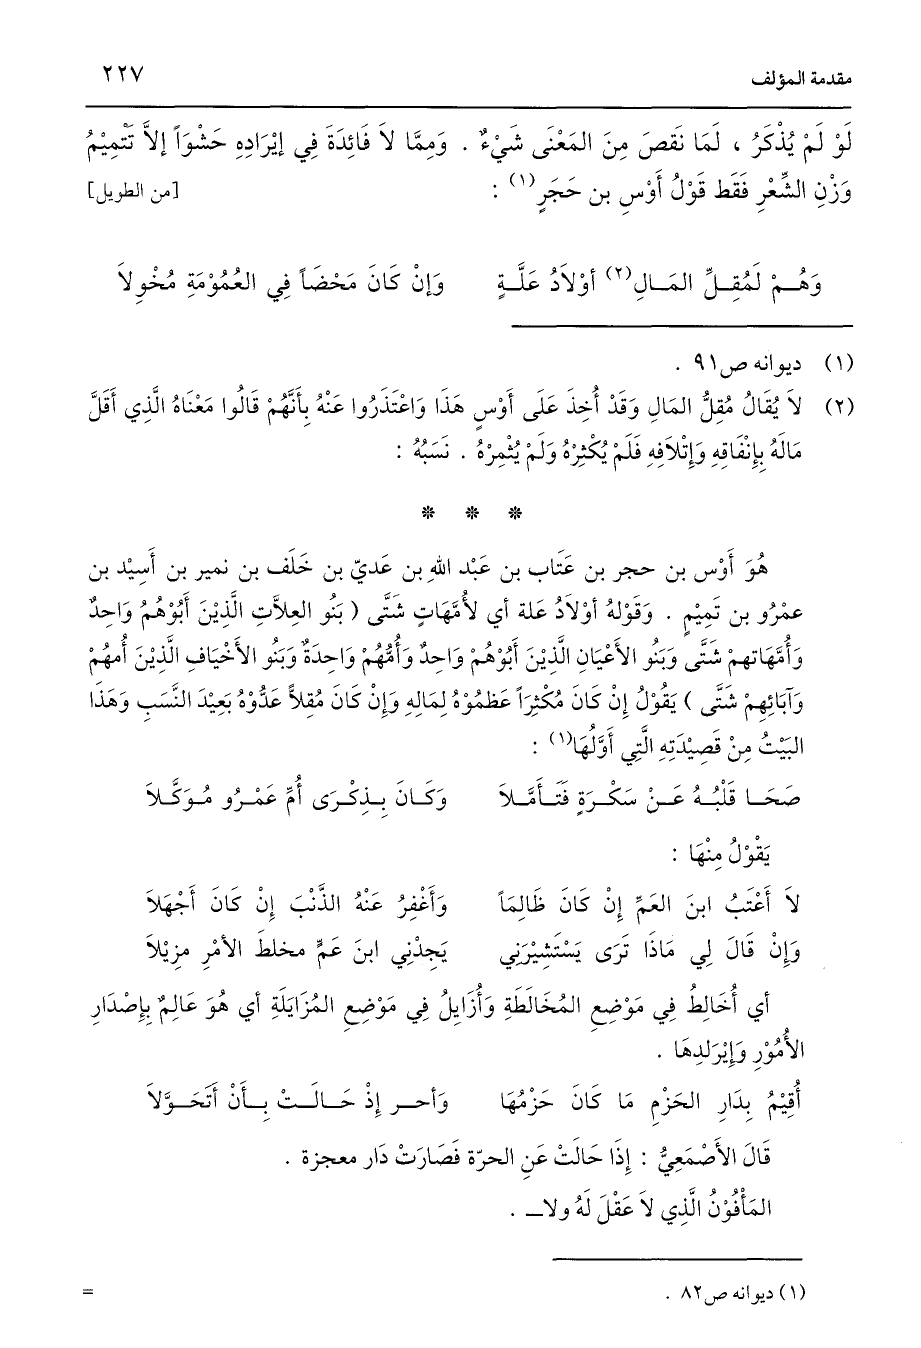 مقدمة المؤلف ٢٢٧
لَوْ لَمْ يُذْكَرْ ، لَمَا نَقصَ مِنَ المَعْنَى شَيْءٌ . وَمِمَّا لاَ فَائِدَةَ فِي إيْرَادِهِ حَشْوَاً إلاَّ تَتْمِيْمُ
وَزْنِ الشِّعْرِ فَقَط قَوْلُ أَوْسِ بن حَجَرٍ(١) : [من الطويل]
وَهُــمْ لَمُقِــلِّ المَــالِ(٢) أوْلاَدُ عَلَّــةٍ وَإنْ كَانَ مَحْضَاً فِي العُمُوْمَةِ مُخْولاَ
(١) ديوانه ص٩١ .
(٢) لاَ يُقَالُ مُقِلُّ المَالِ وَقَدْ أُخِذَ عَلَى أَوْسٍ هَذَا وَاعْتَذَرُوا عَنْهُ بِأَنَّهُمْ قَالُوا مَعْنَاهُ الَّذِي أَقَلَّ
مَالَهُ بِإنْفَاقِهِ وَإتْلاَفِهِ فَلَمْ يُكْثِرْهُ وَلَمْ يُثْمِرْهُ . نَسَبُهُ :
* * *
هُوَ أَوْس بن حجر بن عَتَاب بن عَبْد اللهِ بن عَديّ بن خَلَف بن نمير بن أَسِيْد بن
عمْرُو بن تَمِيْمٍ . وَقَوْلهُ أوْلاَدُ علة أي لأُمَّهَاتٍ شَتَّى ( بَنُو العِلاَّتِ الَّذِيْنَ أَبُوْهُمُ وَاحِدٌ
وَأُمَّهَاتهمْ شَتَّى وَبَنُو الأعْيَانِ الَّذِيْنَ أَبُوْهُمْ وَاحِدٌ وَأُمُّهُمْ وَاحِدَةٌ وَبَنُو الأخْيَافِ الَّذِيْنَ أمهُمْ
وَآبَائِهِمْ شَتَّى ) يَقُوْلُ إنْ كَانَ مُكْثِرَاً عَظمُوْهُ لِمَالِهِ وَإنْ كَانَ مُقِلاًّ عَدُّوْهُ بَعِيْدَ النَّسَبِ وَهَذَا
البَيْتُ مِنْ قَصِيْدَتِهِ الَّتِي أَوَّلُهَا(١) :
صَحَــا قَلْبُــهُ عَــنْ سَكْــرَةٍ فَتَــأَمَّــلاَ وَكَــانَ بِــذِكْرَى أُمِّ عَمْــرُو مُــوَكَّــلاَ
يَقْوْلُ مِنْهَا :
لاَ أَعْتَبُ ابنَ العَمِّ إنْ كَانَ ظَالِمَاً وَأَغْفِرُ عَنْهُ الذَّنْبَ إنْ كَانَ أَجْهَلاَ
وَإنْ قَالَ لِي مَاذَا تَرَى يَسْتَشِيْرَنِي يَجِدْنِي ابنَ عَمٍّ مخلطَ الأمْرِ مزيْلاَ
أي أُخَالِطُ فِي مَوْضِعِ المُخَالَطَةِ وَأُزَايلُ فِي مَوْضِعِ المُزَايَلَةِ أي هُوَ عَالِمٌ بِإصْدَارِ
الأُمُوْرِ وَإيْرَلدِهَا .
أُقِيْمُ بِدَارِ الحَزْمِ مَا كَانَ حَزْمُهَا وَأحــر إذْ حَــالَــتْ بِــأَنْ أَتَحَــوَّلاَ
قَالَ الأَصْمَعِيُّ : إذَا حَالَتْ عَنِ الحرّة فَصَارَتْ دَار معجزة .
المَأْفُوْنُ الَّذِي لاَ عَقْلَ لَهُ ولاــ .
(١) ديوانه ص٨٢ . =